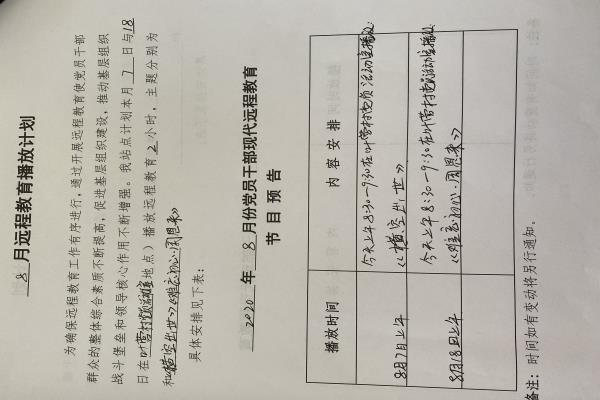 8 月远程教育播放计划
为确保远程教育工作有序进行，通过开展远程教育使党员干部
群众的整体综合素质不断提高，促进基层组织建设，推动基层组织
战斗堡垒和领导核心作用不断增强。我站点计划本月 7 日与 18
日在叶营村党员活动室（地点）播放远程教育 2 小时，主题分别为
和《横空出世》《难忘初心·周恩来》
具体安排见下表：
2020 年 8 月份党员干部现代远程教育
节目预告
播放时间 内容安排
8月7日上午 今天上午8:30-9:30在叶营村党员活动室播放:
《横空出世》
8月18日上午 今天上午8:30-9:30在叶营村党员活动室播放
《难忘初心·周恩来》
备注：时间如有变动将另行通知。